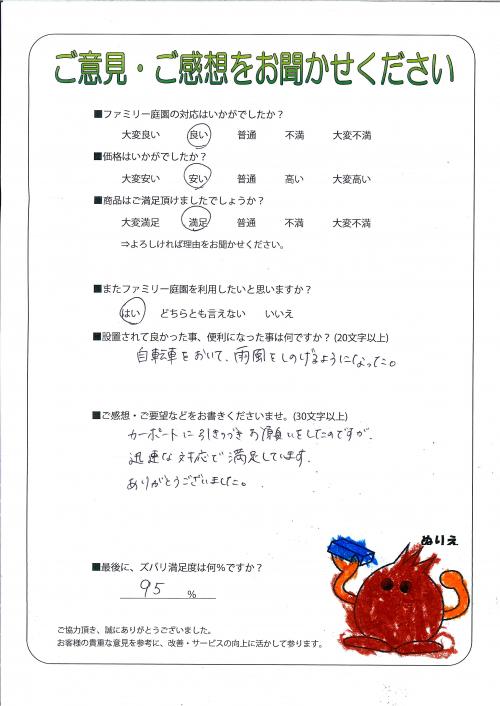 ご意見・ご感想をお聞かせください
■ファミリー庭園の対応はいかがでしたか？
大変良い 良い 普通 不満 大変不満
■価格はいかがでしたか？
大変安い 安い 普通 高い 大変高い
■商品はご満足頂けましたでしょうか？
大変満足 満足 普通 不満 大変不満
⇒よろしければ理由をお聞かせください。
■またファミリー庭園を利用したいと思いますか？
はい どちらとも言えない いいえ
■設置されて良かった事、便利になった事は何ですか？(20文字以上)
自転車をおいて、雨風をしのげるようになった。
■ご感想・ご要望などをお書きくださいませ。(30文字以上)
カーポートに引きつづきお願いをしたのですが、
迅速な対応で満足しています。
ありがとうございました。
ぬりえ
■最後に、ズバリ満足度は何％ですか？
95 ％
ご協力頂き、誠にありがとうございました。
お客様の貴重な意見を参考に、改善・サービスの向上に活かして参ります。